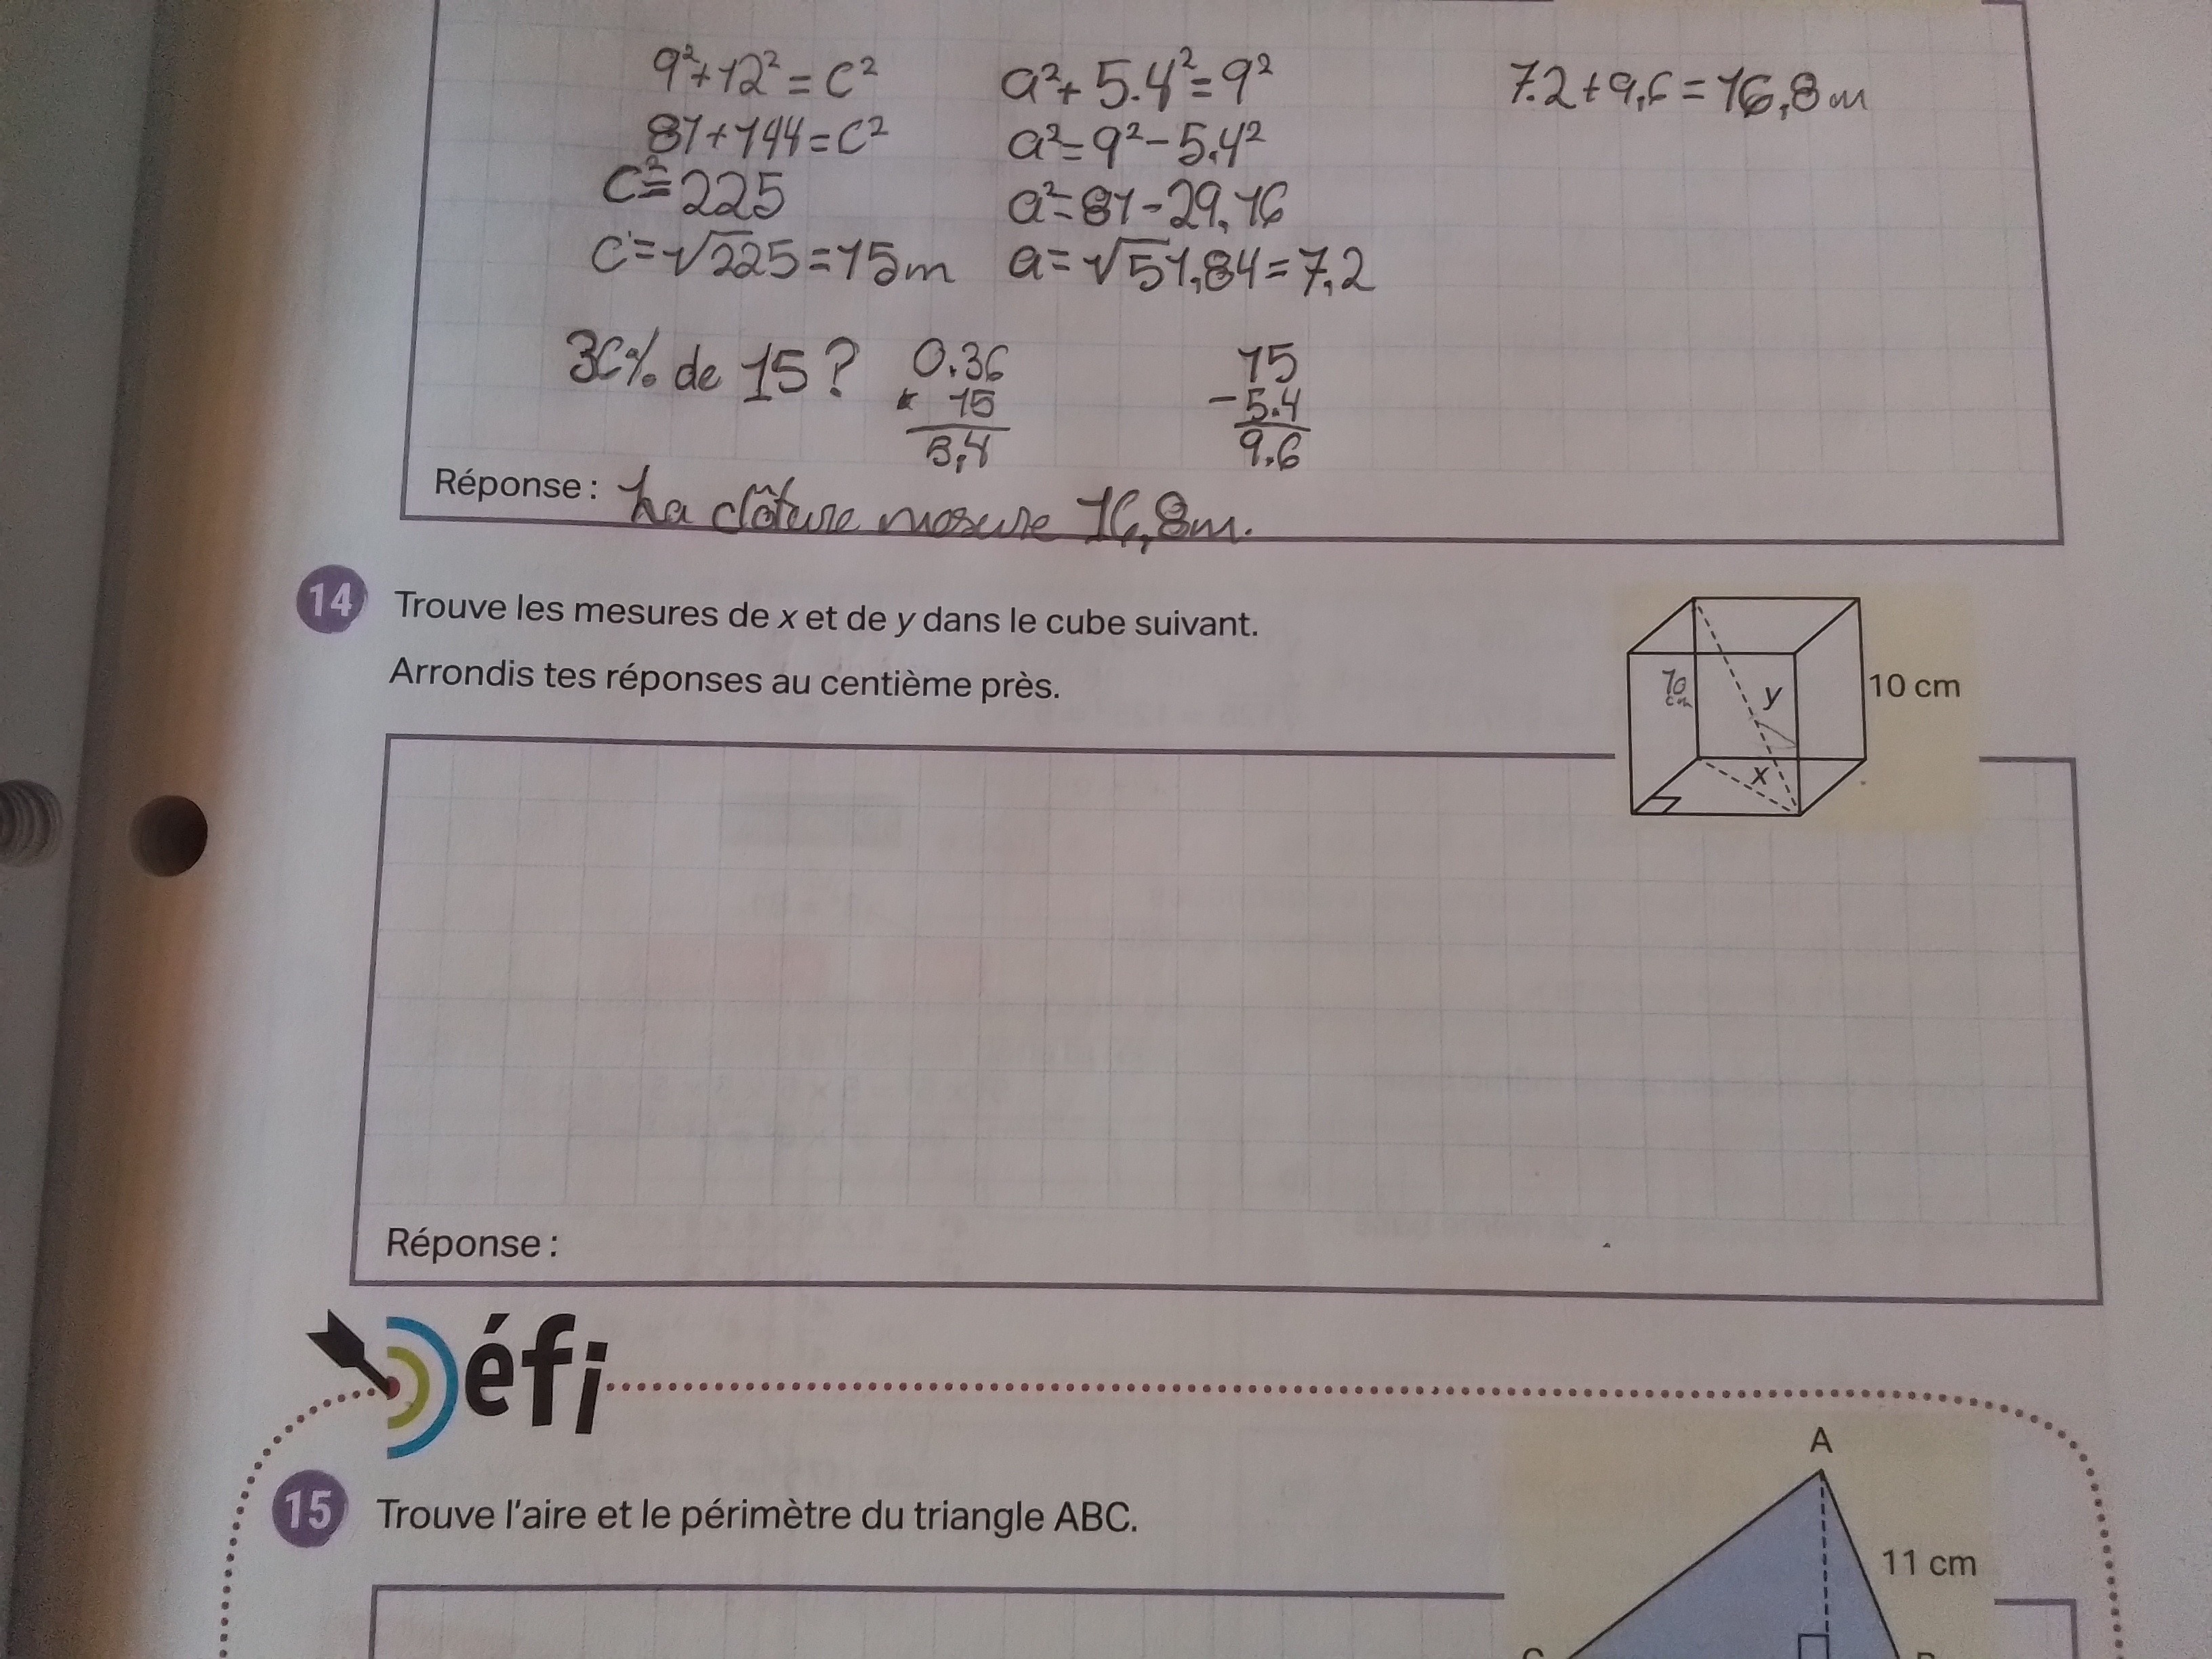 9²+12²=c²
81+144=c²
c²=225
c=√225=15m
a²+5.4²=9²
a²=9²-5.4²
a²=81-29.16
a=√51,84=7,2
7.2+9,6=16,8m
36% de 15?
0.36
× 15
5,4
15
-5.4
9.6
Réponse : La clôture mesure 16,8m.
14 Trouve les mesures de x et de y dans le cube suivant.
Arrondis tes réponses au centième près.
10 cm
y
10 cm
x
Réponse :
Défi
15 Trouve l'aire et le périmètre du triangle ABC.
A
11 cm